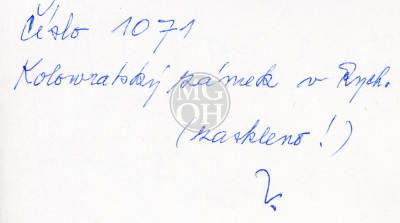 Číslo 1071
Kolowratský zámek v Rych.
(zaskleno!)
?
MG
OH